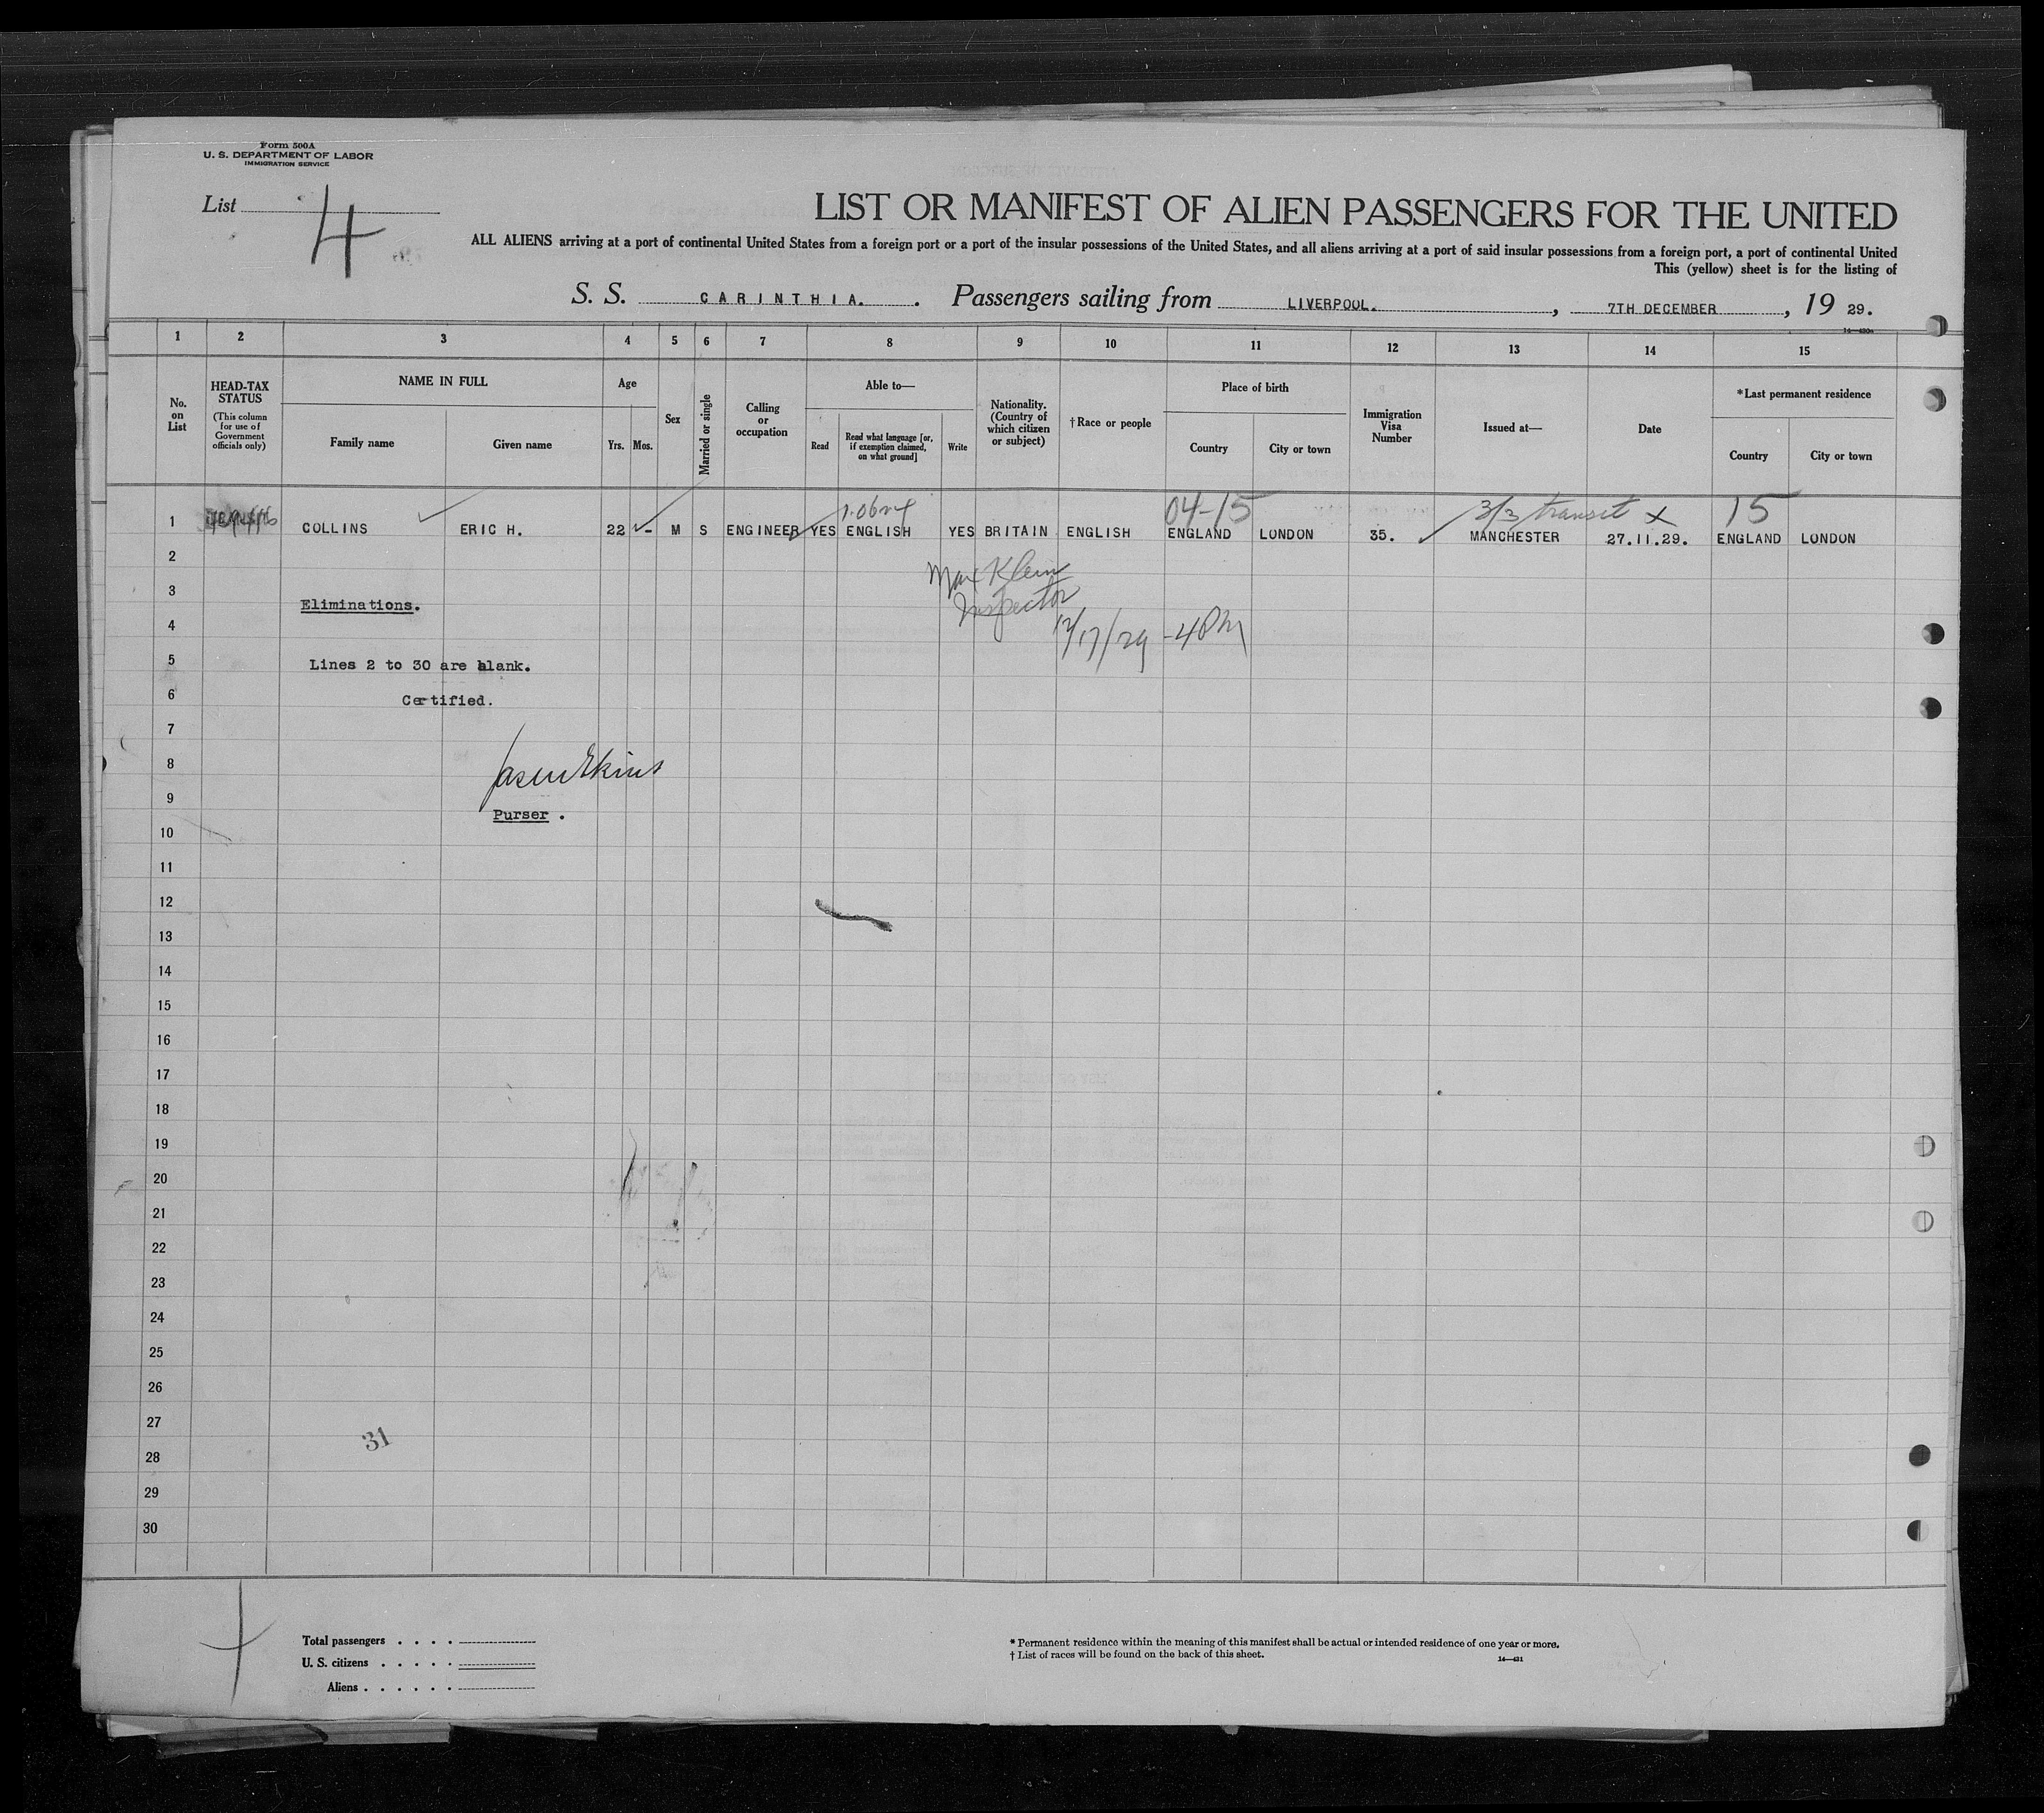 Form 500A
U. S. DEPARTMENT OF LABOR
IMMIGRATION SERVICE
List 4
LIST OR MANIFEST OF ALIEN PASSENGERS FOR THE UNITED
ALL ALIENS arriving at a port of continental United States from a foreign port or a port of the insular possessions of the United States, and all aliens arriving at a port of said insular possessions from a foreign port, a port of continental United
This (yellow) sheet is for the listing of
S. S. CARINTHIA. . Passengers sailing from LIVERPOOL. , 7TH DECEMBER , 19 29.
1 2 3 4 5 6 7 8 9 10 11 12 13 14 15
No. on List
HEAD-TAX STATUS
(This column for use of Government officials only)
NAME IN FULL
Family name
Given name
Age
Yrs. Mos.
Sex
Married or single
Calling or occupation
Able to—
Read
Read what language [or, if exemption claimed, on what ground]
Write
Nationality. (Country of which citizen or subject)
†Race or people
Place of birth
Country
City or town
Immigration Visa Number
Issued at—
Date
*Last permanent residence
Country
City or town
04-15 3/3 transit x 15
1 COLLINS ERIC H. 22 - M S ENGINEER YES ENGLISH YES BRITAIN ENGLISH ENGLAND LONDON 35. MANCHESTER 27.11.29. ENGLAND LONDON
2
Max Klein
3
Eliminations.
Inspector
4
12/17/29 - 4 PM
5
Lines 2 to 30 are blank.
6
Certified.
7
8
9
Purser .
10
11
12
13
14
15
16
17
18
19
20
21
22
23
24
25
26
27
31
28
29
30
Total passengers . . . .
U. S. citizens . . . . .
Aliens . . . . . .
* Permanent residence within the meaning of this manifest shall be actual or intended residence of one year or more.
† List of races will be found on the back of this sheet.
14—431